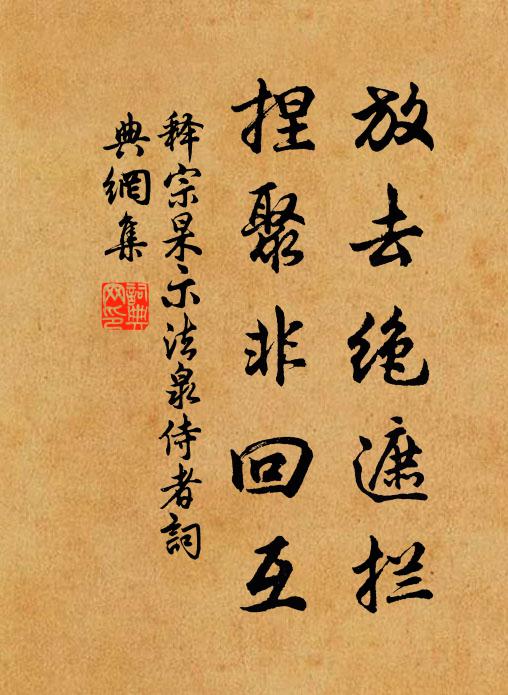 放去绝遮拦
捏聚非回互
释宗杲示法泉侍者词
典網集
詞典網印